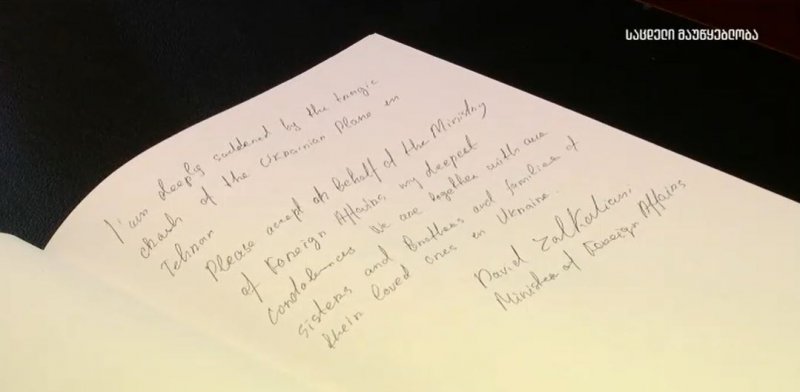 საცდელი მაუწყებლობა
I'am deeply saddened by the tragic
chash of the Ukrainian Plane in
Tehran
Please accept on behalf of the Ministry
of Foreign Affairs my deepest
condolences We are together with our
sisters and Brothers and families of
their loved ones in Ukraine.
David Zalkaliani
Minister of Foreign Affairs